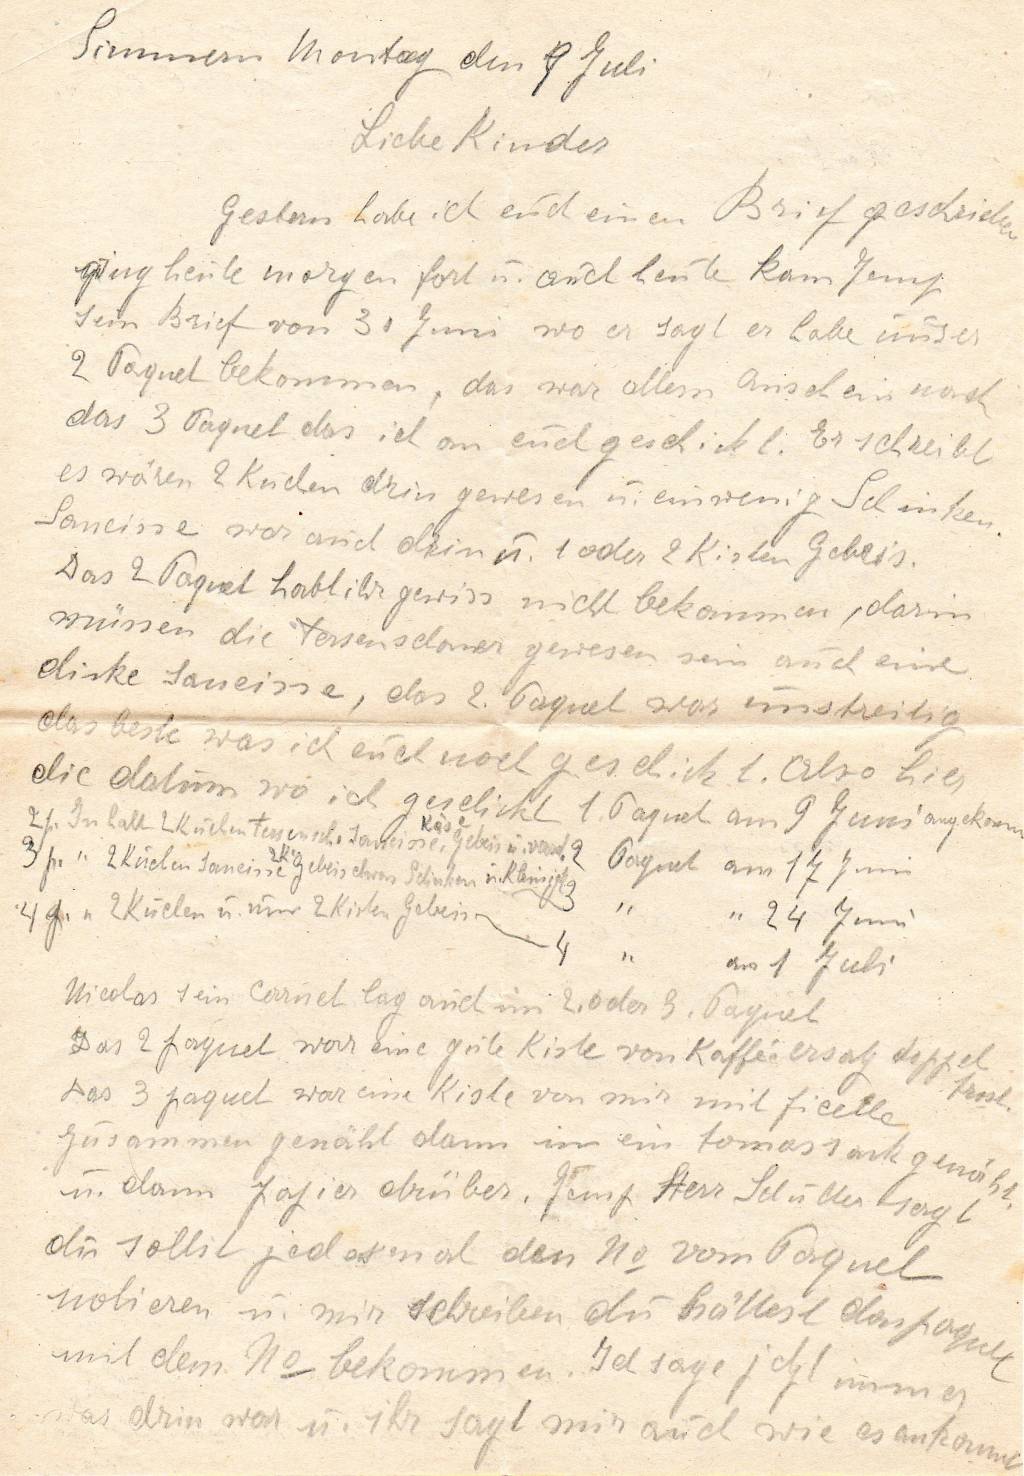 Simmern Montag den 9 Juli
Liebe Kinder
Gestern habe ich euch einen Brief geschrieben
ging heute morgen fort u. auch heute kam Jemp
sein Brief von 30 Juni wo er sagt er habe unser
2 Paquet bekommen, das war allem Anschein nach
das 3 Paquet das ich an euch geschickt. Er schreibt
es wären 2 Kuchen drin gewesen u. ein wenig Schinken.
Saucisse war auch drin u. 1 oder 2 Kisten Gebeis.
Das 2 Paquet habt ihr gewiss nicht bekommen, darin
müssen die gewesen sein auch eine
dicke saucisse, das 2. Paquet war unstreitig
das beste was ich euch noch geschickt. Also hier
die datum wo ich geschickt 1. Paquet am 9 Juni angekomm
2 p. Inhalt 2 Kuchen Saucisse, Käse Gebeis u. 2 Paquet am 17 Juni
3 p. " 2 Kuchen Saucisse 2 K. Gebeis etwas Schinken u. 3 " " 24 Juni
4 p. " 2 Kuchen u. nur 2 Kisten Gebeis 4 " am 1 Juli
Nicolas sein Carnet lag auch im 2. oder 3. Paquet
Das 2 paquet war eine gute Kiste von Kafféeersatz doppel
Das 3 paquet war eine Kiste von mir mit ficelle
zusammen genäht dann in ein sack genäht.
u. dann papier drüber. Jemp Herr Schutter sagt
du sollst jedesmal den No vom Paquet
notieren u. mir schreiben du hättest das paquet
mit dem No bekommen. Ich sage jetzt immer
was drin war u. ihr sagt mir auch wie es ankommt